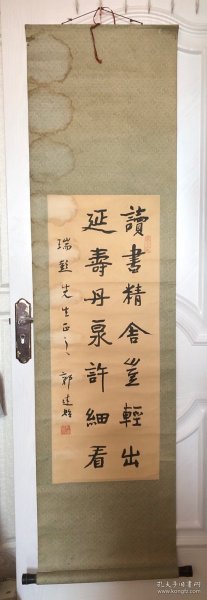 讀書精舍豈輕出
延壽丹泉許細看
瑞㪟先生正之 郭
孔夫子旧书网
www.kongfz.com